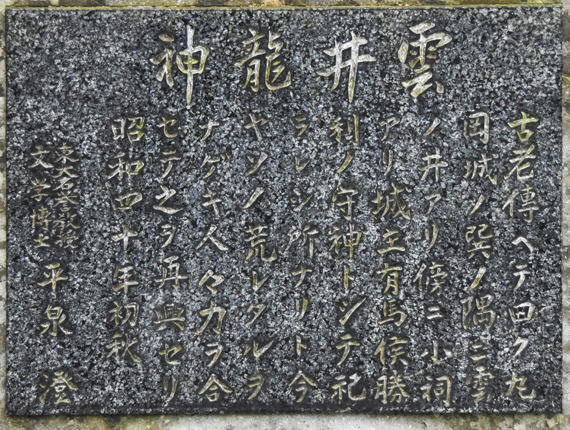 雲井龍神
古老傳ヘテ曰ク丸
岡城ノ巽ノ隅ニ雲
ノ井アリ傍ニ小祠
アリ城主有馬侯勝
利ノ守神トシテ祀
ラレシ所ナリト今
ヤソノ荒レタルヲ
ナゲキ人々力ヲ合
セテ之ヲ再興セリ
昭和四十年初秋
東大名誉教授
文学博士 平泉 澄